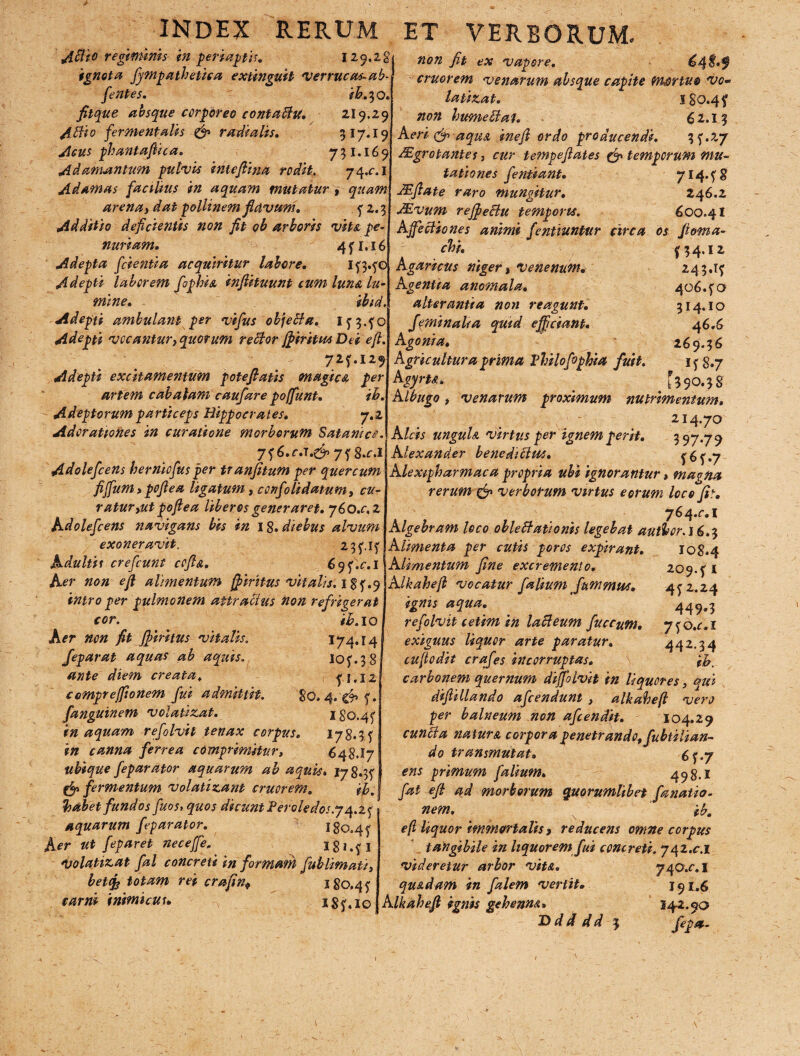 INDEX RERUM ET VERBORUM.
Actio regiminis in periaptis. 129.28
ignota sympathetica extinguit verrucas ab-
sentes. ib.30.
fitque absque corporeo contactu. 219.29
Actio fermentalis & radialis. 317.19
Acus phantastica. 731.169
Adamantum pulvis intestina rodit. 74.c.1
Adamas facilius in aquam mutatur, quam
arena, dat pollinem flavum. 52.3
Additio deficientis non fit ob arboris vitæ pe-
nuriam. 451.16
Adepta scientia acquiritur labore. 153.50
Adepti laborem sophiæ instituunt cum lunæ lu-
mine. ibid.
Adepti ambulant per visus objecta. 153.50
Adepti vocantur, quorum rector spiritus Dei est.
725.129
Adepti excitamentum potestatis magicæ per
artem cabalam causare possunt. ib.
Adeptorum particeps Hippocrates. 7.2
Adorationes in curatione morborum Satanicæ.
756.c.1.& 758.c.1
Adolescens herniosus per transitum per quercum
fissum, postea ligatum, consolidatum, cu-
ratur, ut postea liberos generaret. 760.c.2
Adolescens navigans bis in 18. diebus alvum
exoneravit. 235.15
Adultis crescunt costæ. 695.c.1
Aer non est alimentum spiritus vitalis. 185.9
intro per pulmonem attractus non refrigerat
cor. ib.10
Aer non fit spiritus vitalis. 174.14
separat aquas ab aquis. 105.38
ante diem creata. 51.12
compressionem sui admittit. 80. 4. & 5.
sanguinem volatizat. 180.45
in aquam resolvit tenax corpus. 178.35
in canna ferrea comprimitur, 648.17
ubique separator aquarum ab aquis. 178.35
& fermentum volatizant cruorem. ib.
habet fundos suos, quos dicunt Peroledos. 74.25
aquarum separator. 180.45
Aer ut separet necesse. 181.51
volatizat sal concreti in formam sublimati,
betque totam rei crasin. 180.45
carni inimicus. 185.10
non fit ex vapore. 648.9
cruorem venarum absque capite mortuo vo-
latizat. 180.45
non humectat. 62.13
Aeri & aquæ inest ordo producendi. 35.27
Ægrotantes, cur tempestates & temporum mu-
tationes sentiant. 714.58
Æstate raro mungitur. 246.2
Ævum respectu temporis. 600.41
Affectiones animi sentiuntur circa os stoma-
chi. 534.12
Agaricus niger, venenum. 243.15
Agentia anomala. 406.50
alterantia non reagunt. 314.10
seminalia quid efficiant. 46.6
Agonia. 269.36
Agricultura prima Philosophia fuit. 158.7
Agyrtæ. [390.38
Albugo, venarum proximum nutrimentum.
214.70
Alcis ungulæ virtus per ignem perit. 397.79
Alexander benedictus. 565.7
Alexipharmaca propria ubi ignorantur, magna
rerum & verborum virtus eorum loco fit.
764.c.1
Algebram loco oblectationis legebat author. 16.3
Alimenta per cutis poros expirant. 108.4
Alimentum sine excremento. 209.51
Alkahest vocatur salium summus. 452.24
ignis aqua. 449.3
resolvit cetim in lacteum succum. 750.c.1
exiguus liquor arte paratur. 442.34
custodit crases incorruptas. ib.
carbonem quernum dissolvit in liquores, qui
distillando ascendunt, alkahest vero
per balneum non ascendit. 104.29
cuncta naturæ corpora penetrando, subtilian-
do transmutat. 65.7
ens primum salium. 498.1
sat est ad morborum quorumlibet sanatio-
nem. ib.
est liquor immortalis, reducens omne corpus
tangibile in liquorem sui concreti. 742.c.1
videretur arbor vitæ. 740.c.1
quædam in salem vertit. 191.6
Alkahest ignis gehennæ. 142.90
Ddd dd 3 sepa-